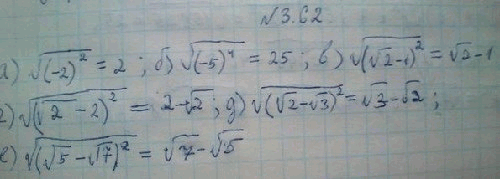 №3.62
а) √(-2)² = 2 ; б) √(-5)⁴ = 25 ; в) √(√2-1)² = √2-1
г) √(√2-2)² = 2-√2 ; д) √(√2-√3)² = √3-√2 ;
е) √(√5-√7)² = √7-√5